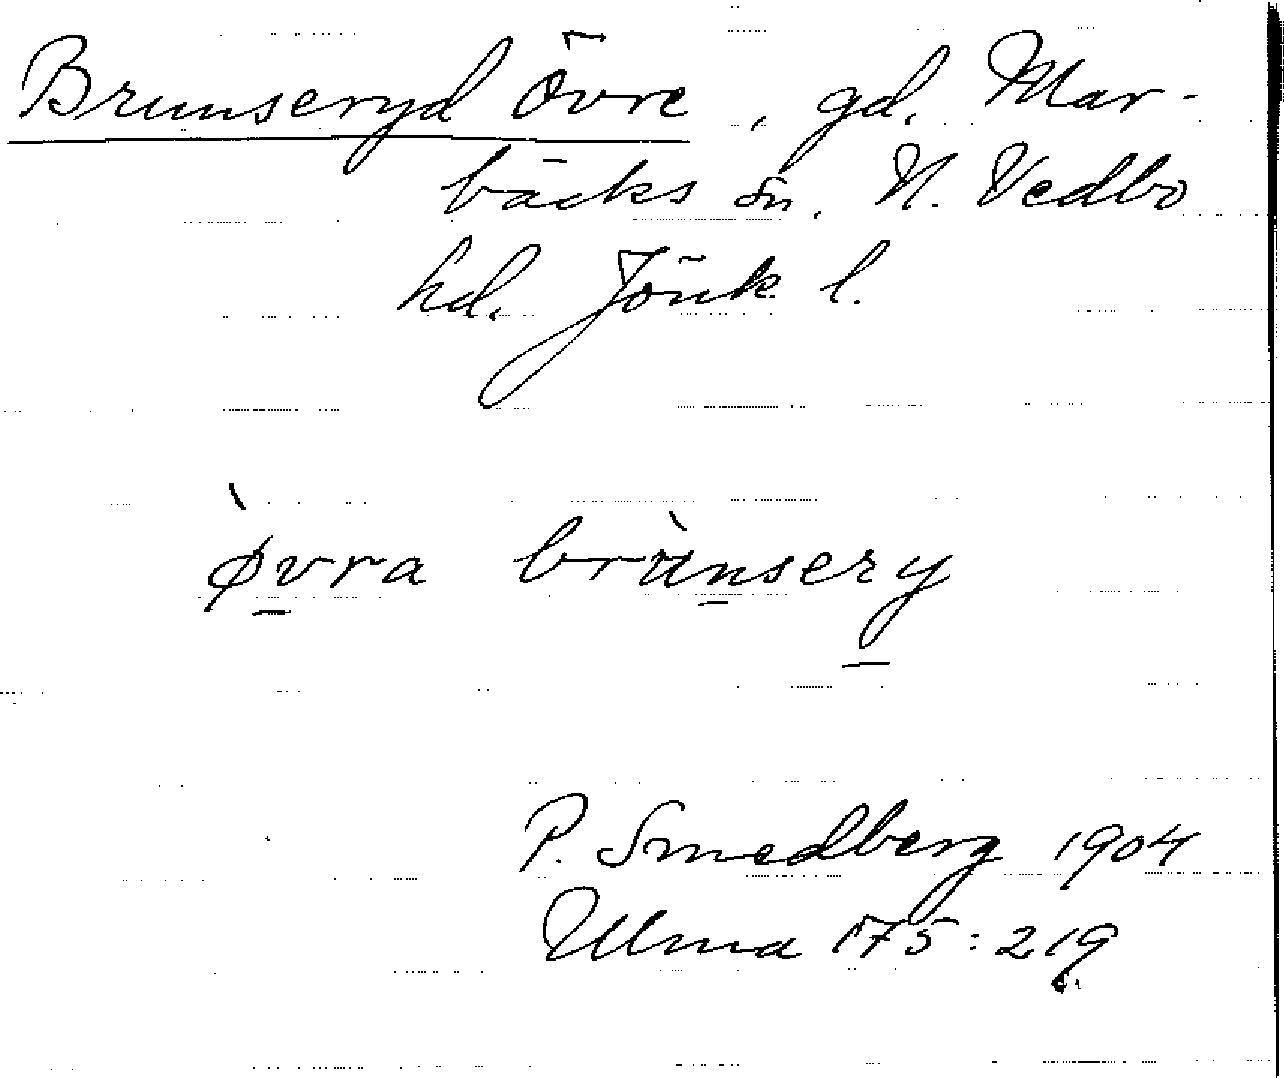 Brunseryd Övre, gd. Mar-
bäcks sn. N. Vedbo
hd. Jönk l.
ø̀vra brùnsery
P. Smedberg 1904
Ulma 175:219